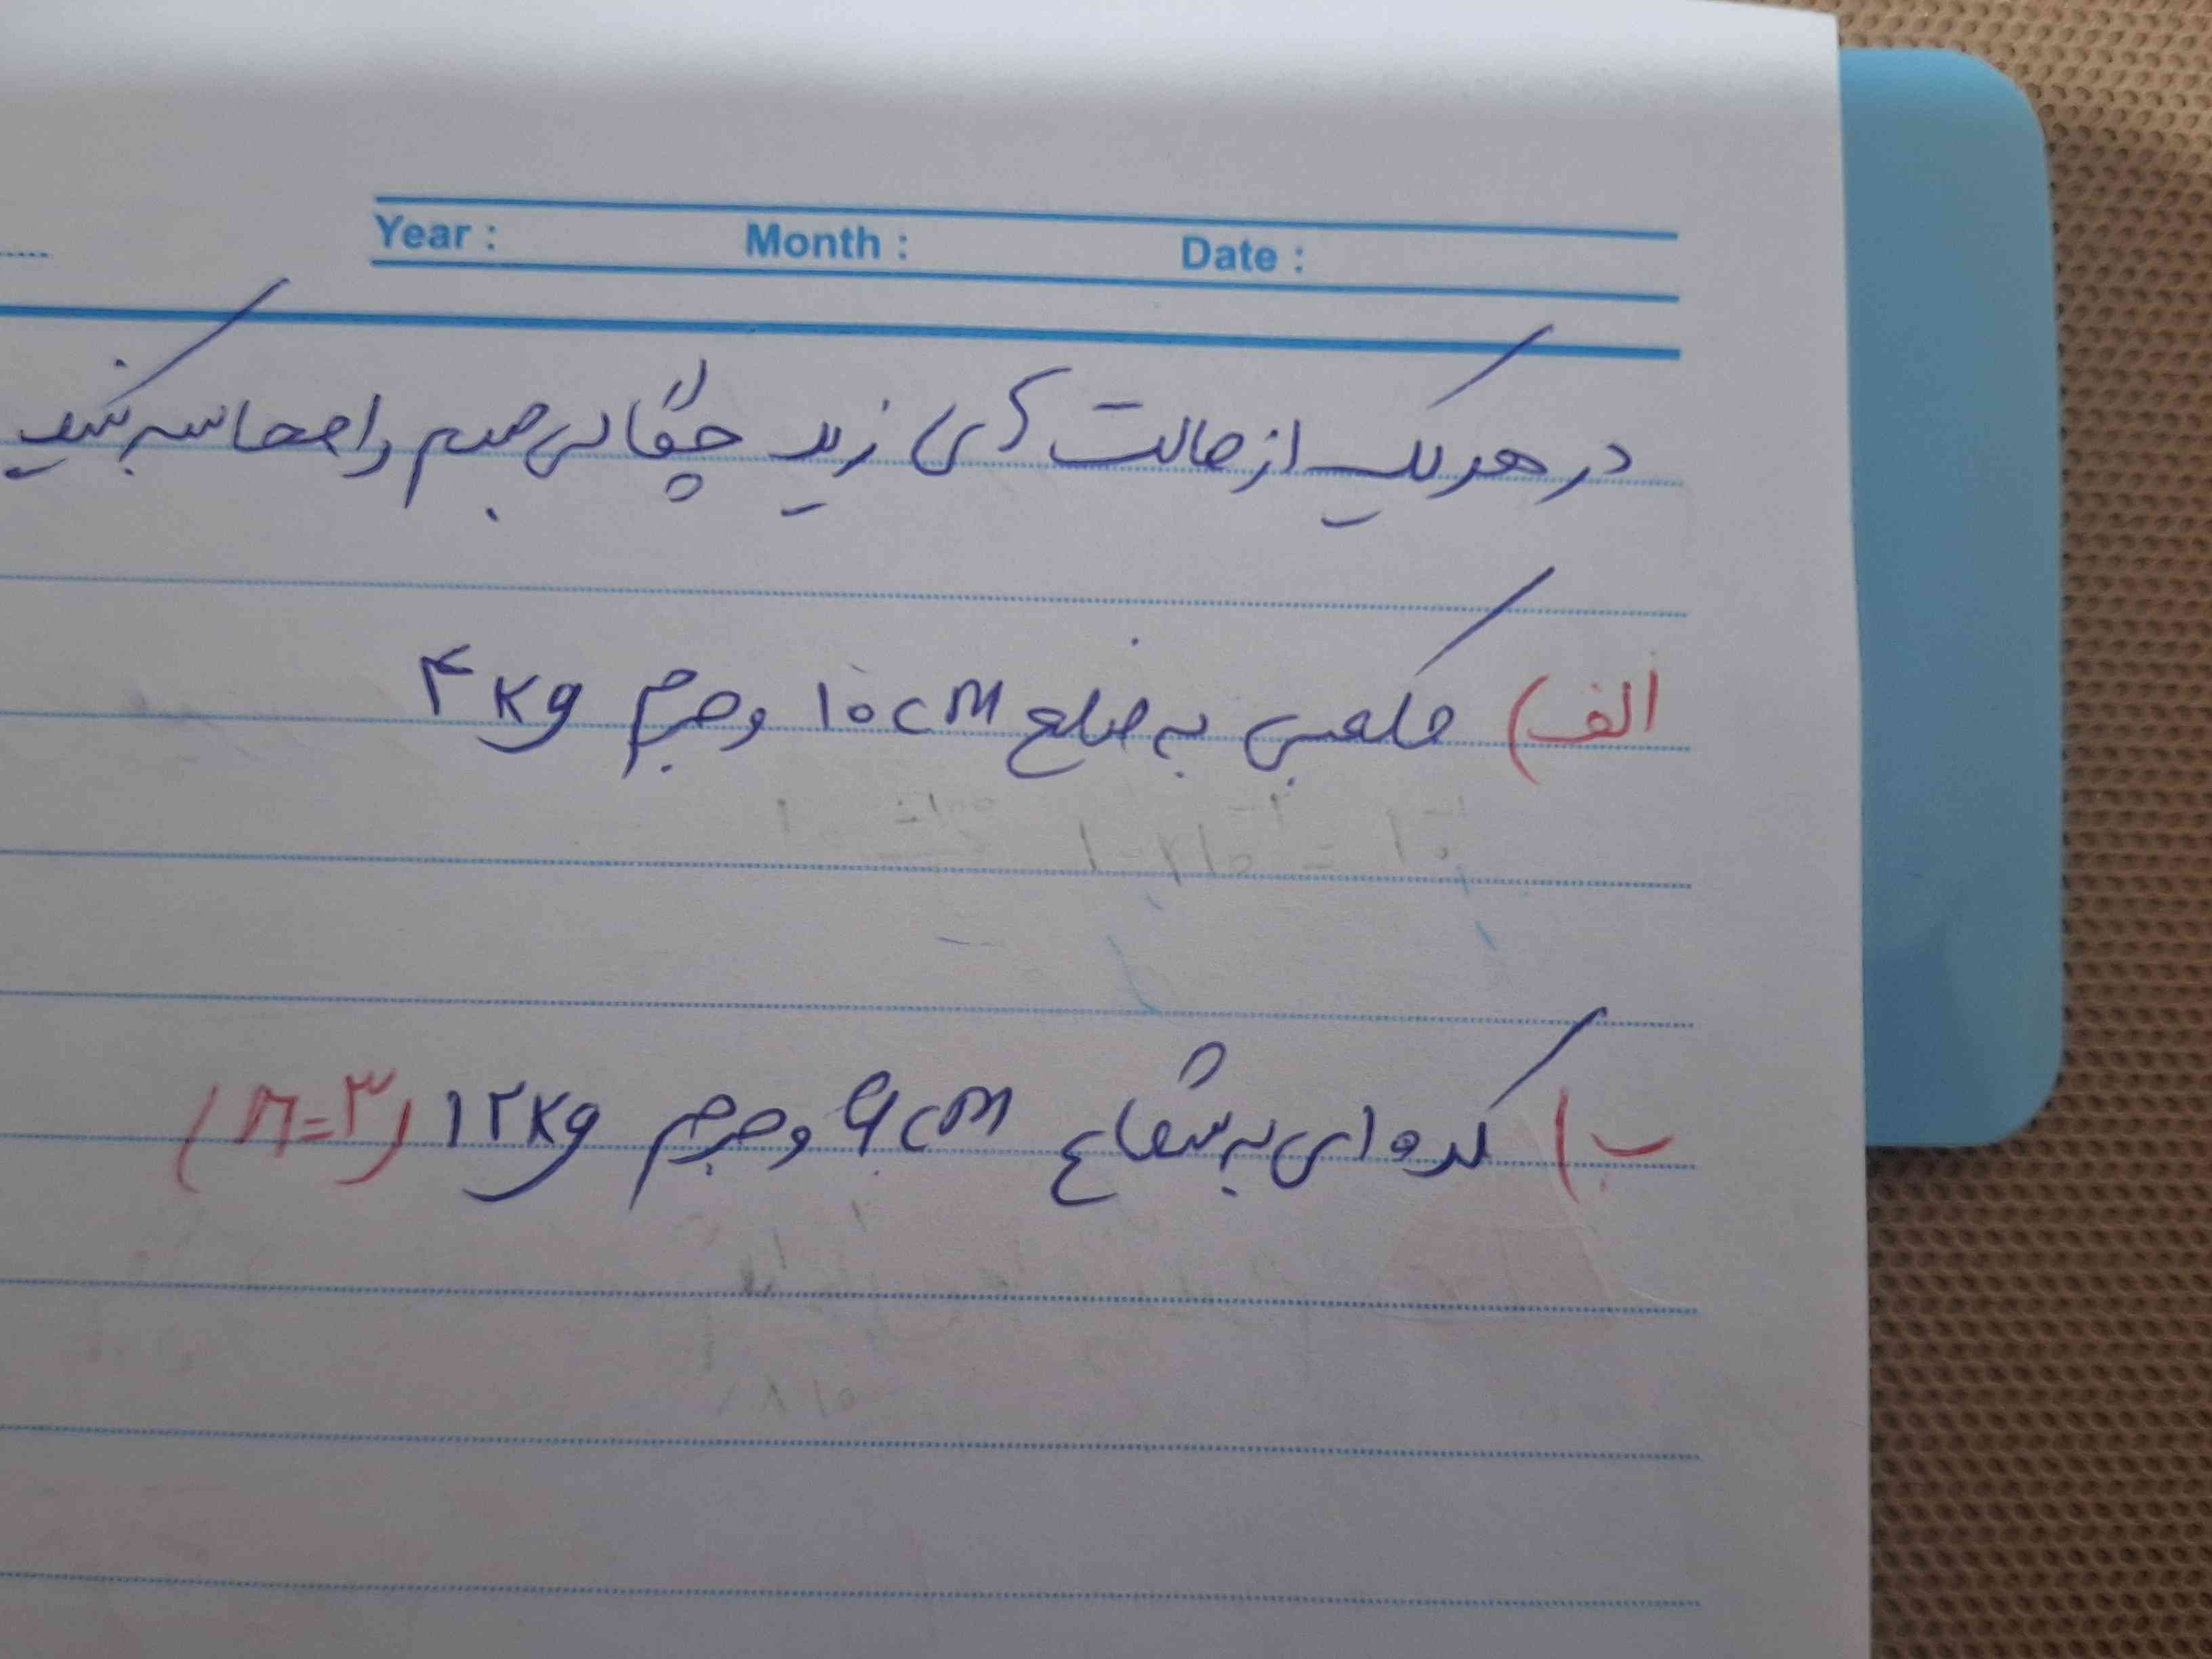 Year : Month : Date :
در هر یک از حالت های زیر چگالی جسم را محاسبه کنید
الف) مکعبی به ضلع ۱۰cm و جرم ۴kg
ب) کره ای به شعاع ۹cm و جرم ۱۲kg (π=۳)